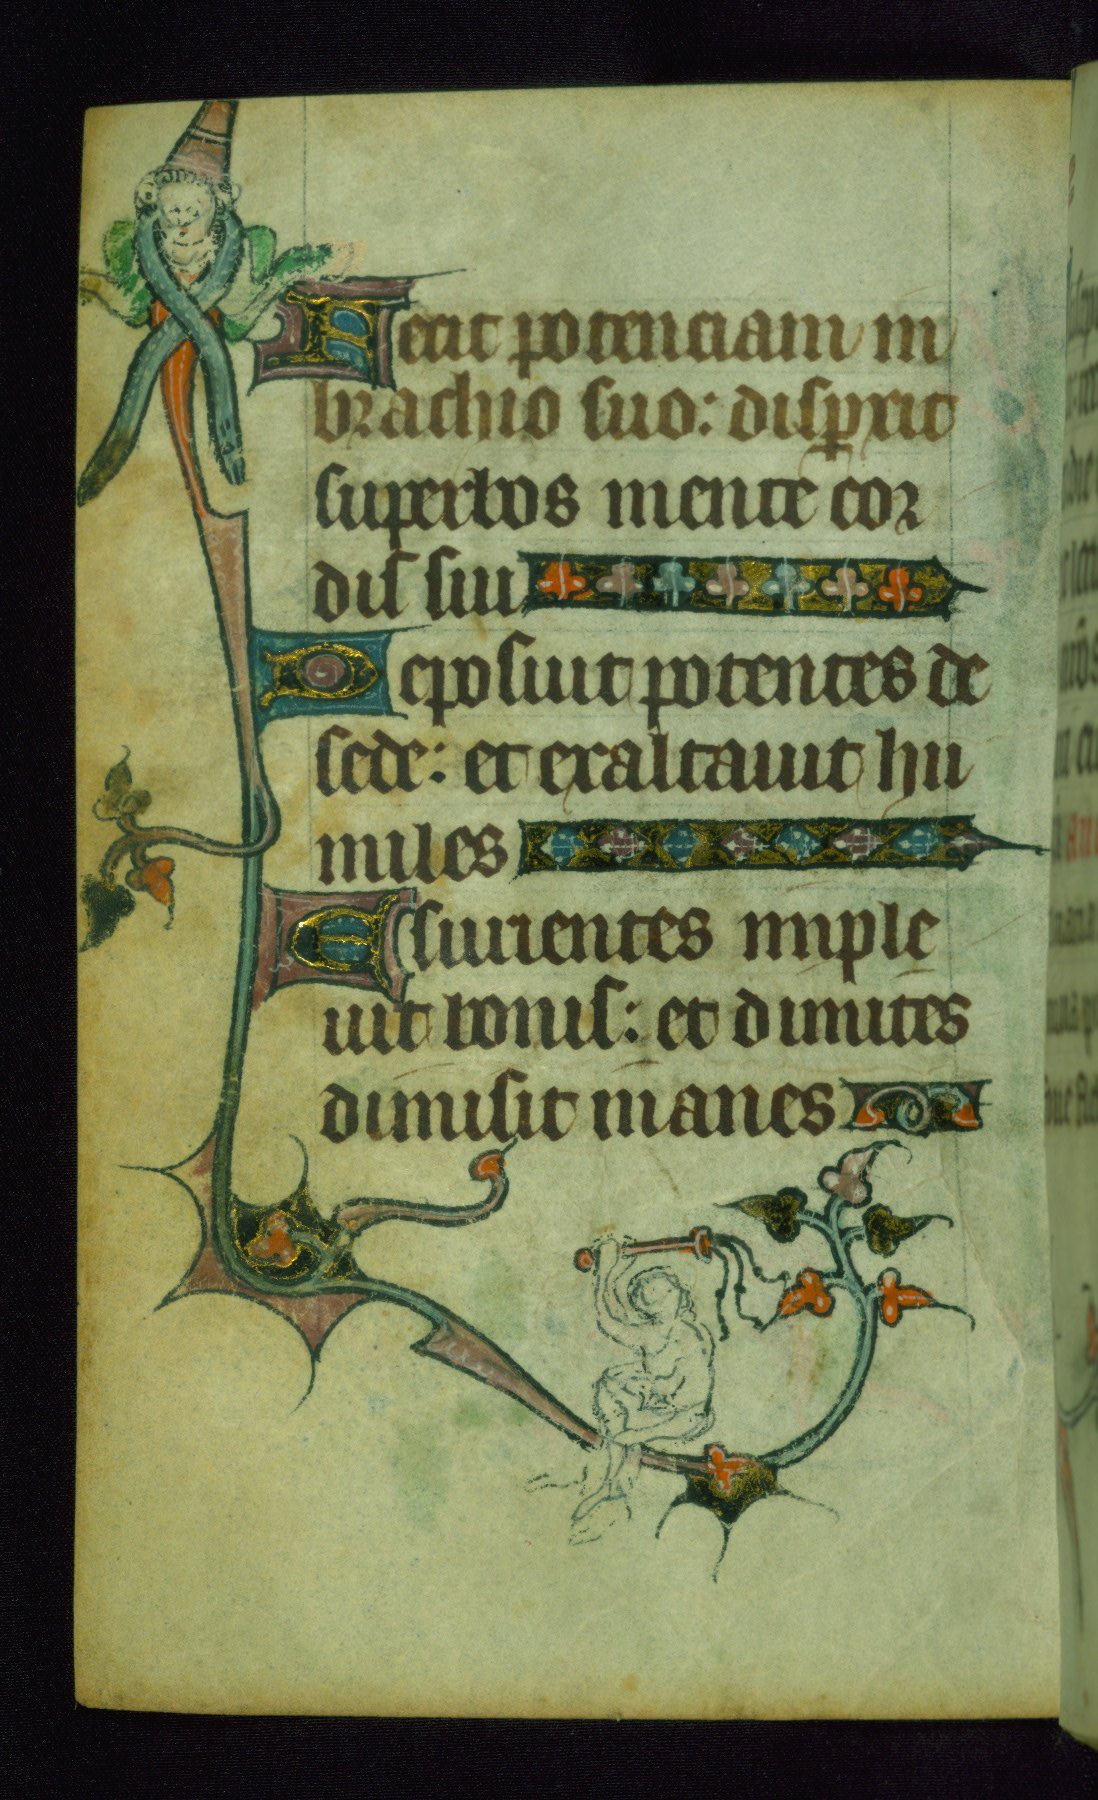 Fecit potenciam in
brachio suo: disp̲xit
superbos mente cor
dis sui
Deposuit potentes de
sede: et exaltauit hu
miles
Esurientes imple
uit bonis: et diuites
dimisit inanes